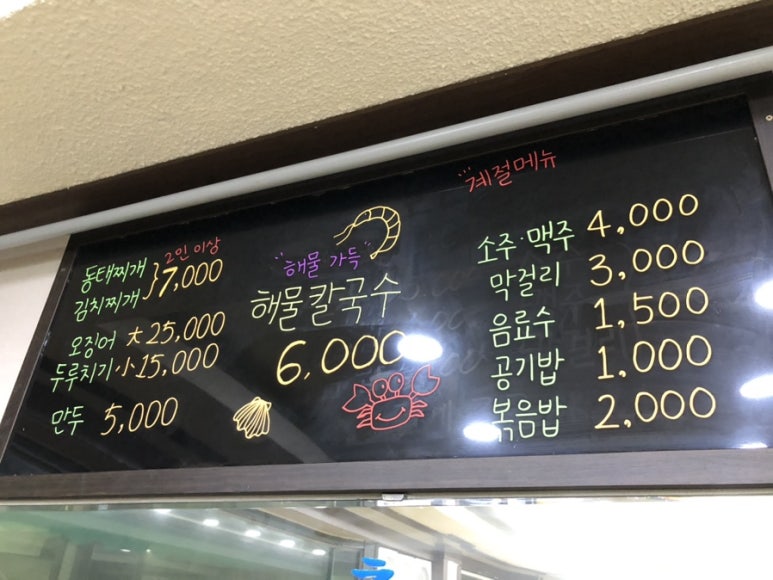 2인 이상
동태찌개
김치찌개 } 7,000
오징어 大 25,000
두루치기 小 15,000
만두 5,000
해물 가득
해물칼국수
6,000
계절메뉴
소주·맥주 4,000
막걸리 3,000
음료수 1,500
공기밥 1,000
볶음밥 2,000